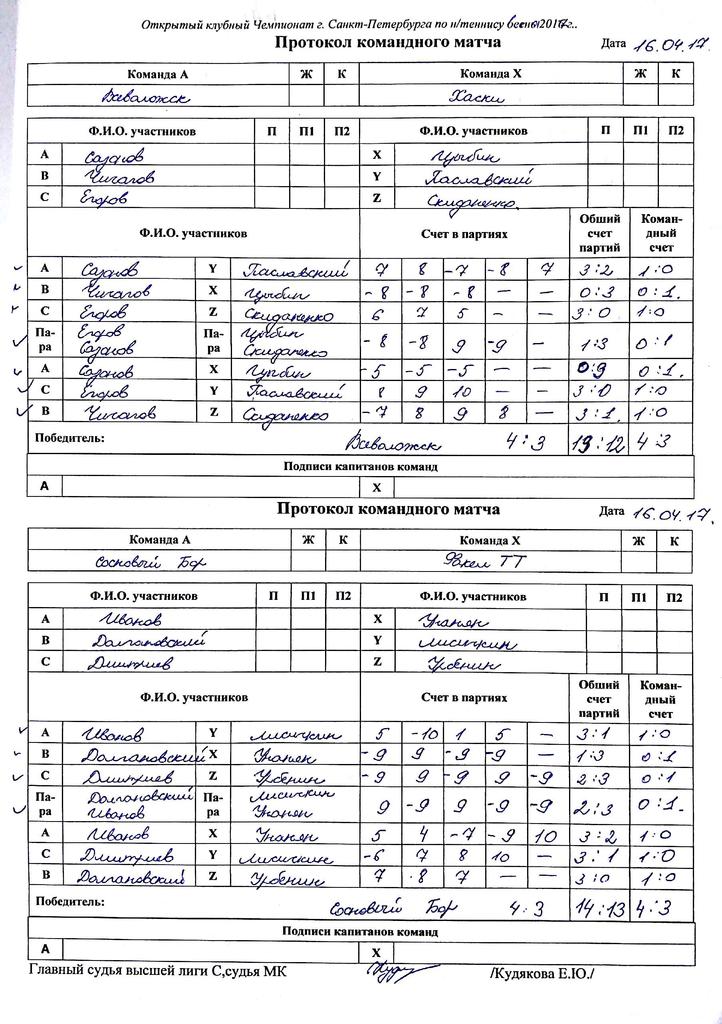 Открытый клубный Чемпионат г. Санкт-Петербурга по н/теннису весна 2017г..
Протокол командного матча Дата 16.04.17.
Команда А Ж К Команда Х Ж К
Всеволожск Хаски
Ф.И.О. участников П П1 П2 Ф.И.О. участников П П1 П2
А Сазанов X Цыбин
В Чигагов Y Паславский
С Егоров Z Скиданенко
Ф.И.О. участников Счет в партиях Обший счет партий Коман-дный счет
А Сазанов Y Паславский 7 8 -7 -8 7 3:2 1:0
В Чигагов X Цыбин -8 -8 -8 — — 0:3 0:1.
С Егоров Z Скиданенко 6 7 5 - — 3:0 1:0
Па-ра Егоров Сазанов Па-ра Цыбин Скиданенко -8 -8 9 -9 — 1:3 0:1
А Сазанов X Цыбин -5 -5 -5 — — 0:1.
С Егоров Y Паславский 8 9 10 — — 3:0 1:0
В Чигагов Z Скиданенко -7 8 9 8 — 3:1. 1:0
Победитель: Всеволожск 4:3 13:12 4:3
Подписи капитанов команд
А X
Протокол командного матча Дата 16.04.17.
Команда А Ж К Команда Х Ж К
Сосновый Бор Факел ТТ
Ф.И.О. участников П П1 П2 Ф.И.О. участников П П1 П2
А Иванов X Унанян
В Долгановский Y Лисичкин
С Дмитриев Z Урбенин
Ф.И.О. участников Счет в партиях Обший счет партий Коман-дный счет
А Иванов Y Лисичкин 5 -10 1 5 — 3:1 1:0
В Долгановский X Унанян -9 9 -9 -9 — 1:3 0:1
С Дмитриев Z Урбенин -9 9 -9 9 -9 2:3 0:1
Па-ра Долгановский Иванов Па-ра Лисичкин Унанян 9 -9 9 -9 -9 2:3 0:1.
А Иванов X Унанян 5 4 -7 -9 10 3:2 1:0
С Дмитриев Y Лисичкин -6 7 8 10 — 3:1 1:0
В Долгановский Z Урбенин 7 8 7 — — 3:0 1:0
Победитель: Сосновый Бор 4:3 14:13 4:3
Подписи капитанов команд
А X
Главный судья высшей лиги С,судья МК /Кудякова Е.Ю./